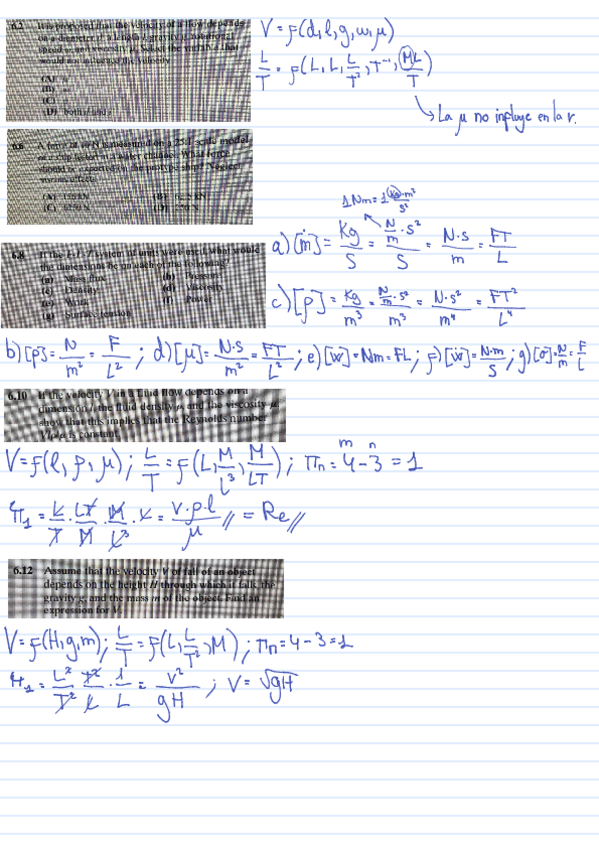 6.2 It is proposed that the velocity of a flow depends
on a diameter d, a length l, gravity g, rotational
speed ω, and viscosity μ. Select the variable that
would not influence the velocity.
(A)
(B)
(C)
(D)
V = f(d, l, g, ω, μ)
L/T = f(L, L, L/T², T⁻¹, ML/T)
→ La μ no influye en la v.
6.6 A force of 10 N is measured on a 25:1 scale model
of a ship tested in a water channel. What force
should be expected on the prototype ship? Neglect
viscous effects.
(A)
(B)
(C)
(D)
1 Nm = 1 kg·m²/s²
6.8 If the F-L-T system of units were used, what would
the dimensions be on each of the following?
(a) Mass flux (b) Pressure
(c) Density (d) Viscosity
(e) Work (f) Power
(g) Surface tension
a) [ṁ] = Kg/S = N/m·s²/S = N·s/m = FT/L
c) [ρ] = kg/m³ = N/m·s²/m³ = N·s²/m⁴ = FT²/L⁴
b) [p] = N/m² = F/L² ; d) [μ] = N·s/m² = FT/L² ; e) [w] = Nm = FL ; f) [ẇ] = N·m/S ; g) [σ] = N/m = F/L
6.10 If the velocity V in a fluid flow depends on a
dimension l, the fluid density ρ, and the viscosity μ,
show that this implies that the Reynolds number
Vlρ/μ is constant.
V = f(l, ρ, μ) ; L/T = f(L, M/L³, M/LT) ; Πn = 4 - 3 = 1
m n
Π₁ = L/T · LT/M · M/L³ · L = V·ρ·l/μ // = Re //
6.12 Assume that the velocity V of fall of an object
depends on the height H through which it falls, the
gravity g, and the mass m of the object. Find an
expression for V.
V = f(H, g, m) ; L/T = f(L, L/T², M) ; Πn = 4 - 3 = 1
Π₁ = L²/T² · T²/L · 1/L = V²/gH ; V = √gH